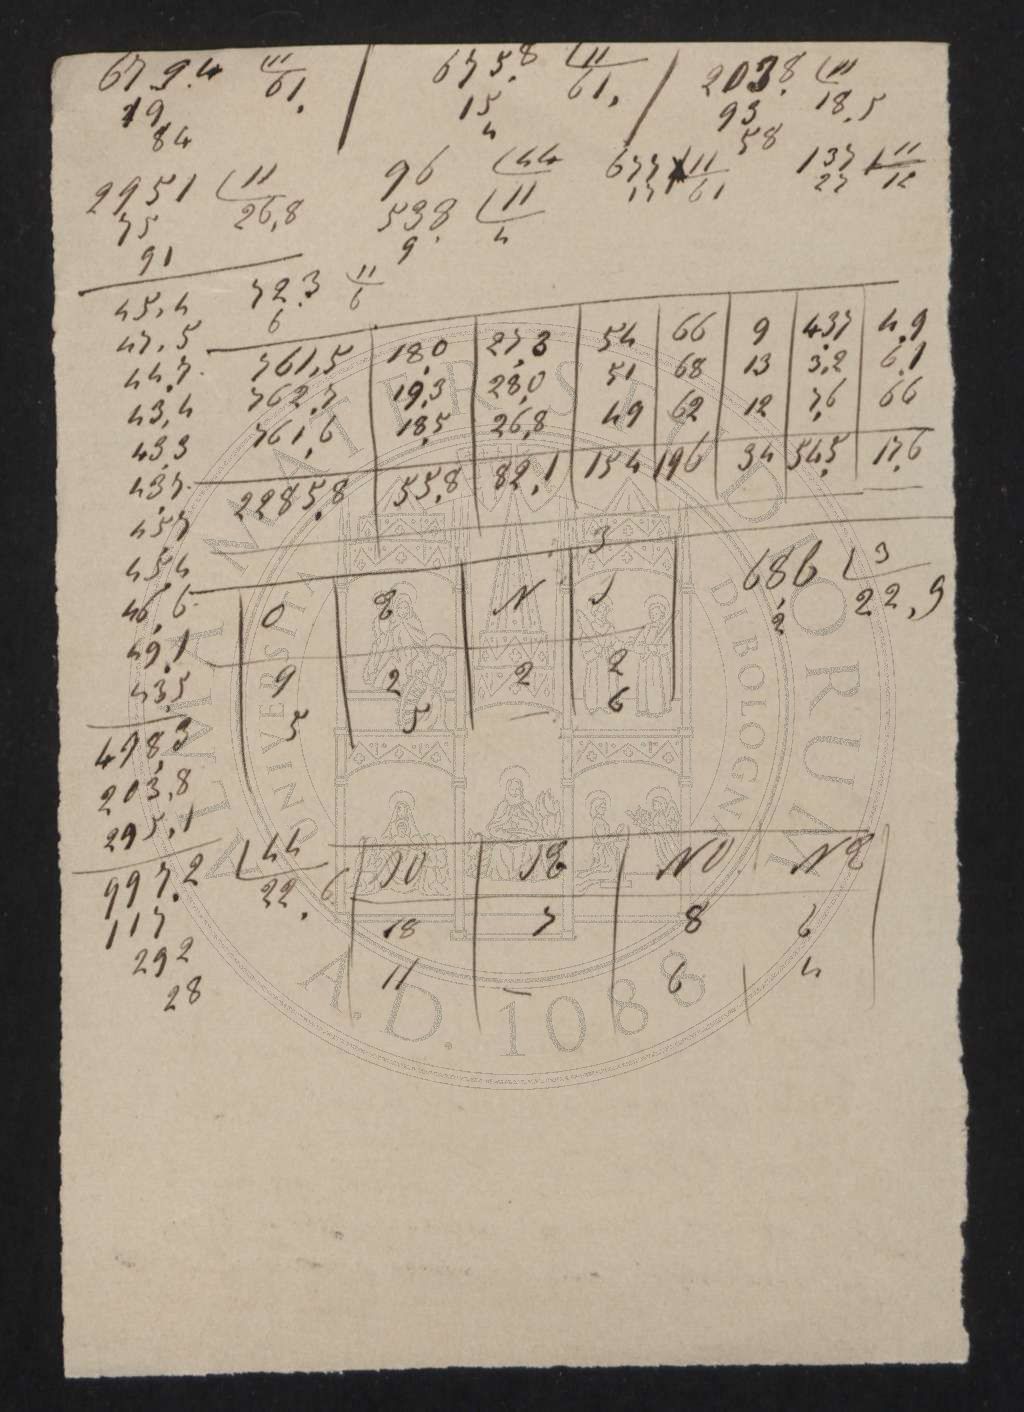 679.4 11 675.8 11 203.8 11
61. 61. 18.5
19 15 93
84 4 58
2951 11 96 44 677 11 137 11
26,8 538. 11 17 61 27 12
75 9 4
91
45,4 72.3 11
6 6
47,5
761,5 18,0 27,3 54 66 9 4,37 4,9
44,7 762,7 19,3 28,0 51 68 13 3,2 6,1
43,4 761,6 18,5 26,8 49 62 12 7,6 66
43,3
43,7 2285,8 55,8 82,1 154 196 34 54,5 17,6
457
45,4 3
46,6 O E N S 68,6 3
2 22,9
49,1
43,5 9 2 2 2
5 5 — 6
498,3
203,8
295,1
997.2 44 SO SE NO NE
22.6
117 18 7 8 6
292 11 — 6 4
28
ALMA MATER STUDIORUM
UNIVERSITA DI BOLOGNA
A.D. 1088